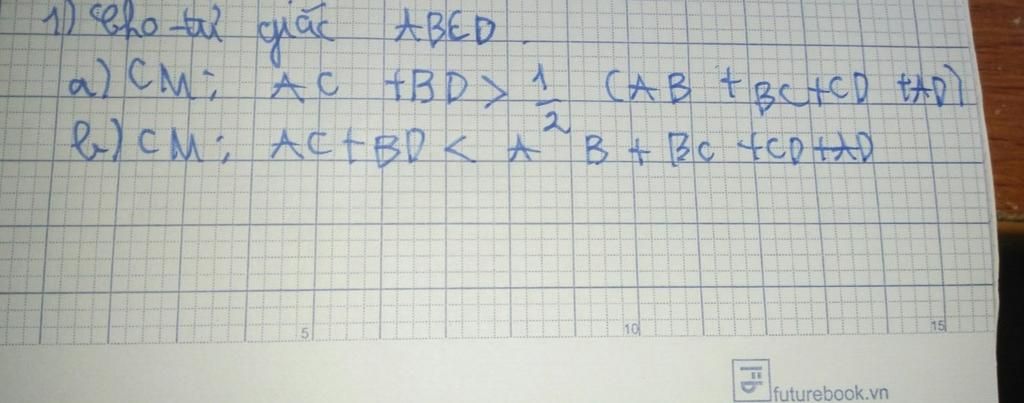 1) Cho tứ giác ABCD.
a) CM: AC + BD > 1/2 (AB + BC + CD + AD)
b) CM: AC + BD < AB + BC + CD + AD
5 10 15
futurebook.vn